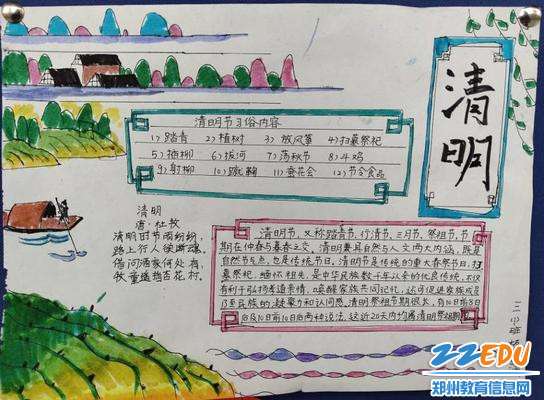 清明
清明节习俗内容
1)踏青 2)植树 3)放风筝 4)扫墓祭祀
5)插柳 6)拔河 7)荡秋节 8)斗鸡
9)射柳 10)蹴鞠 11)蚕花会 12)节令食品
清明
唐·杜牧
清明时节雨纷纷,
路上行人欲断魂,
借问酒家何处有,
牧童遥指杏花村。
清明节,又称踏青节、行清节、三月节、祭祖节,节
期在仲春与暮春之交,清明兼具自然与人文两大内涵,既是
自然节点,也是传统节日,清明节是传统的重大春祭节日,扫
墓祭祀、缅怀祖先,是中华民族数千年以来的优良传统,不仅
有利于弘扬孝道亲情、唤醒家族共同记忆,还可促进家族成员
乃至民族的凝聚力和认同感,清明祭祖节期很长,有10日前8日
后及10日前10日后两种说法,这近20天内均属清明祭祖期
22EDU
郑州教育信息网